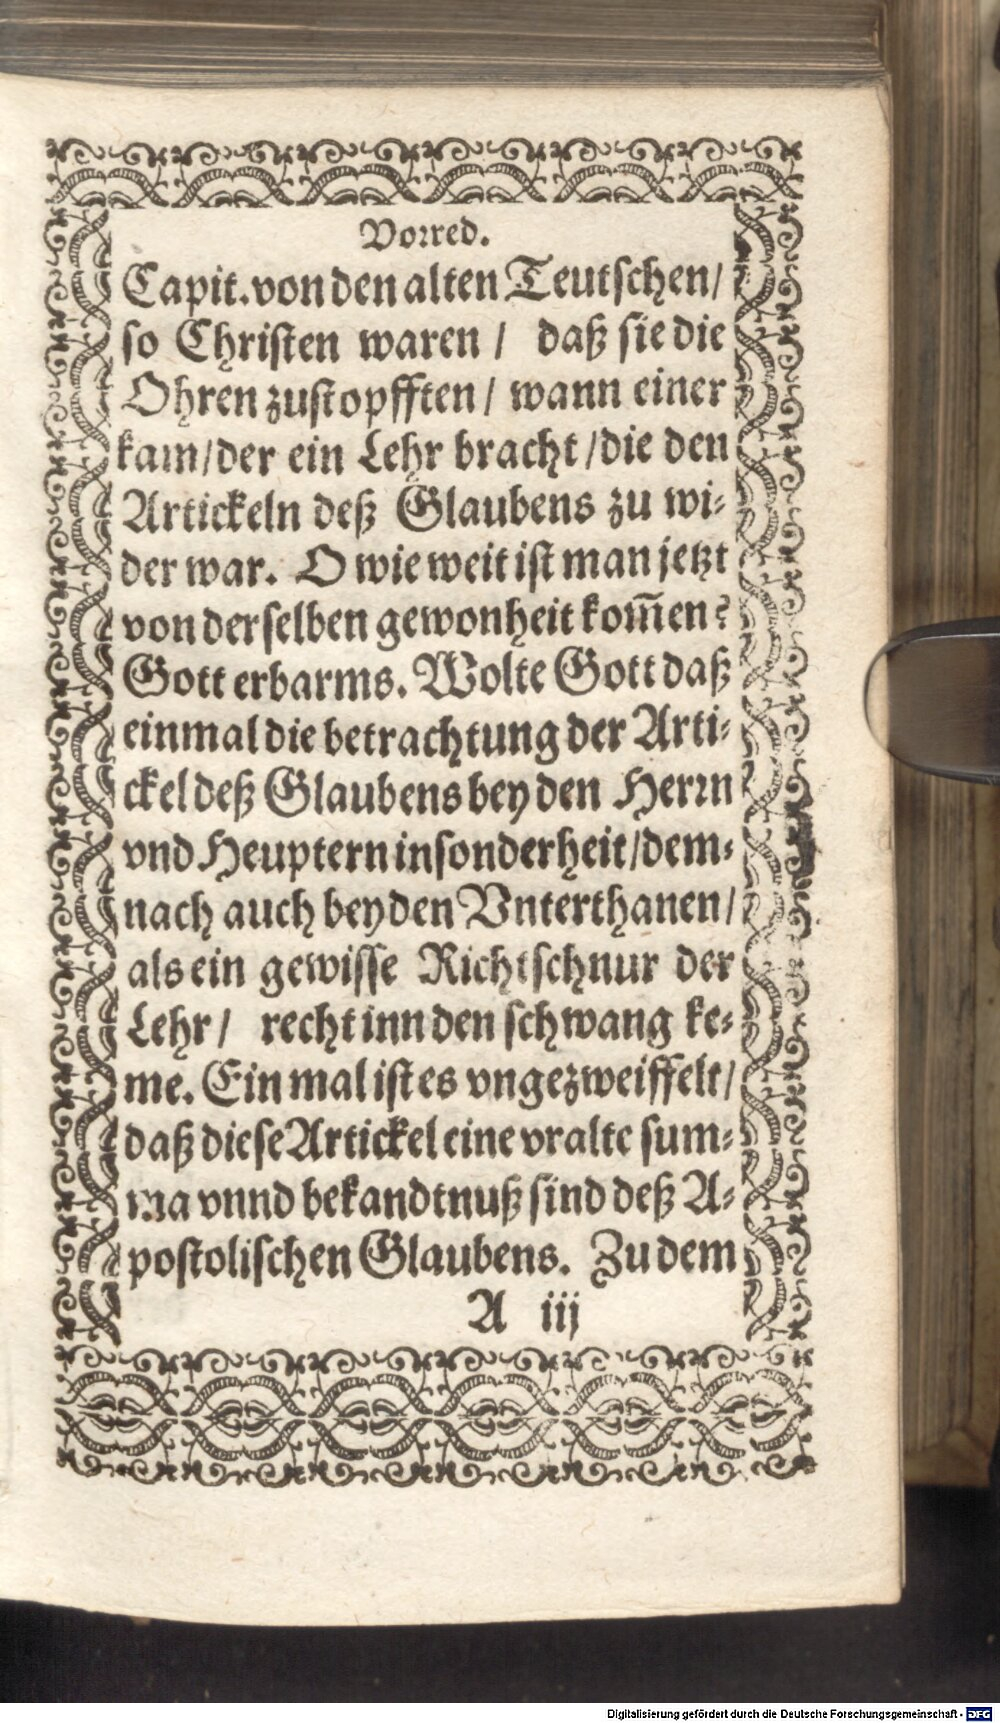 Vorred.
Capit. von den alten Teutschen/
so Christen waren / daß sie die
Ohren zustopfften / wann einer
kam/der ein Lehr bracht /die den
Artickeln deß Glaubens zu wi-
der war. O wie weit ist man jetzt
von derselben gewonheit kom̃en?
Gott erbarms. Wolte Gott daß
einmal die betrachtung der Arti-
ckel deß Glaubens bey den Herrn
vnd Heuptern insonderheit/dem-
nach auch bey den Vnterthanen/
als ein gewisse Richtschnur der
Lehr/ recht inn den schwang ke-
me. Ein mal ist es vngezweiffelt/
daß diese Artickel eine vralte sum-
ma vnnd bekandtnuß sind deß A-
postolischen Glaubens. Zu dem
A iij
Digitalisierung gefördert durch die Deutsche Forschungsgemeinschaft - DFG